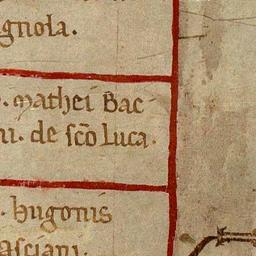 gnola.
. mathei Bac
ni. de sc̄o Luca.
. hugonis
asciani.